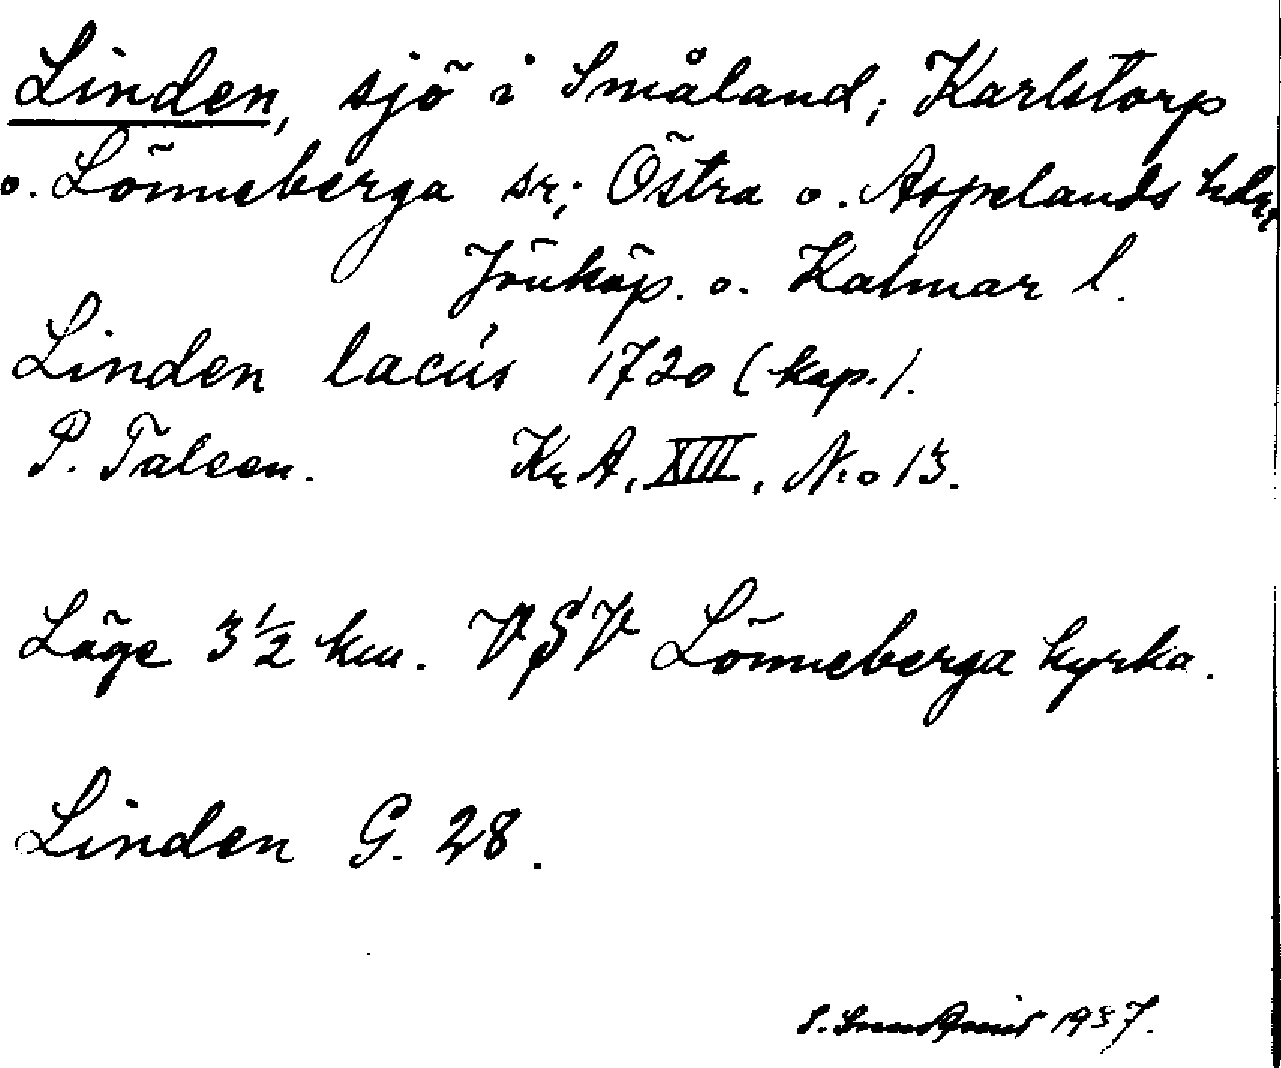 Linden, sjö i Småland; Karlstorp
o. Lönneberga sr; Östra o. Aspelands hdr,
Jönköp. o. Kalmar l.
Linden lacus 1720 (kop.).
P. Taleen. Kr A, XIII, N:o 13.
Läge 3½ km. VSV Lönneberga kyrka.
Linden G. 28.
1937.